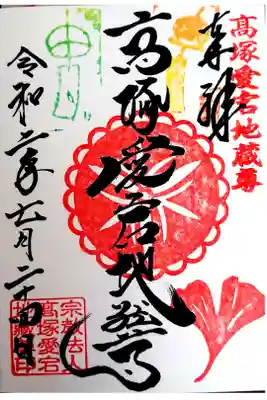 高塚愛宕地蔵尊
奉拝
高塚愛宕地蔵尊
令和二年七月二十四日
宗教法人
高塚愛宕